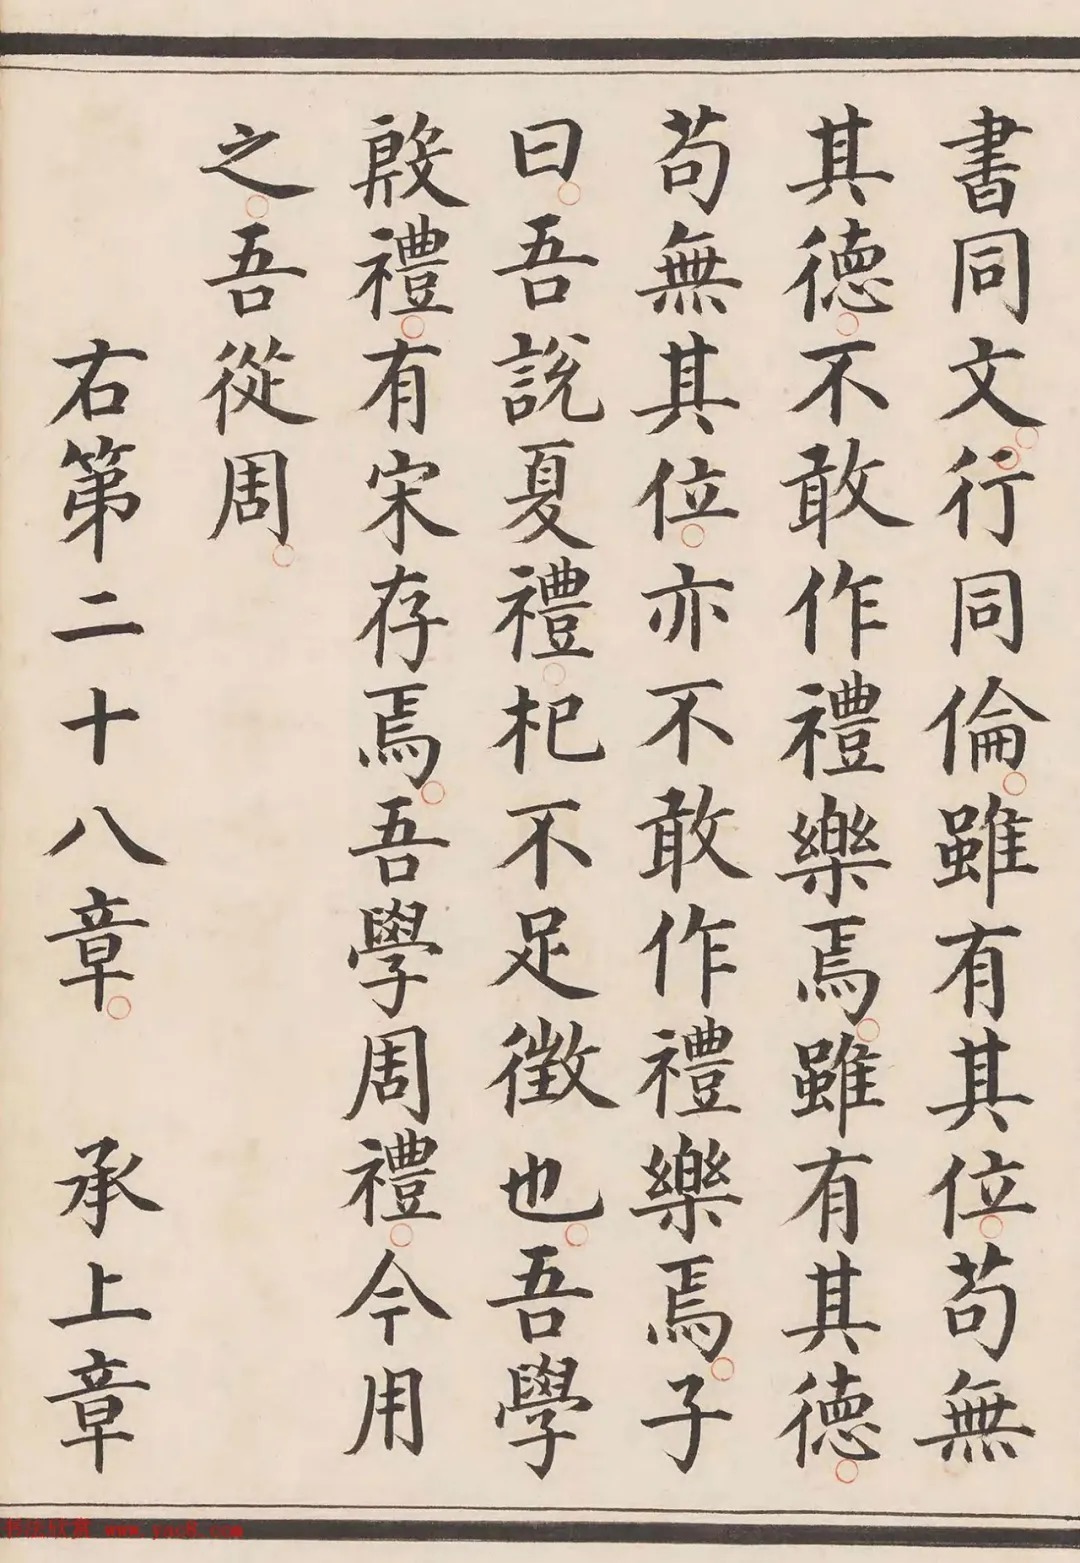 書同文行同倫雖有其位苟無
其德不敢作禮樂焉雖有其德
苟無其位亦不敢作禮樂焉子
曰吾說夏禮杞不足徵也吾學
殷禮有宋存焉吾學周禮今用
之吾從周
右第二十八章 承上章
www.yac8.com